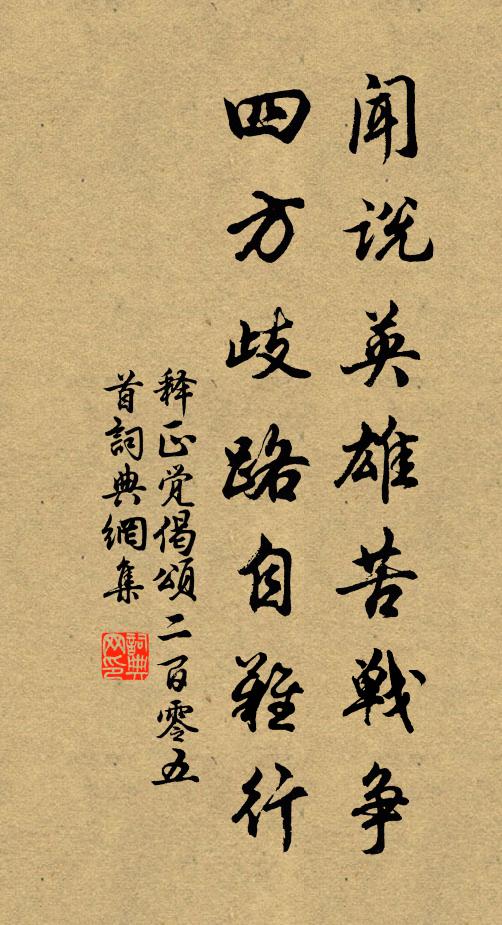 闻说英雄苦戦争
四方歧路自難行
释正觉偈頌二百零五
首詞典網集
詞典
网印